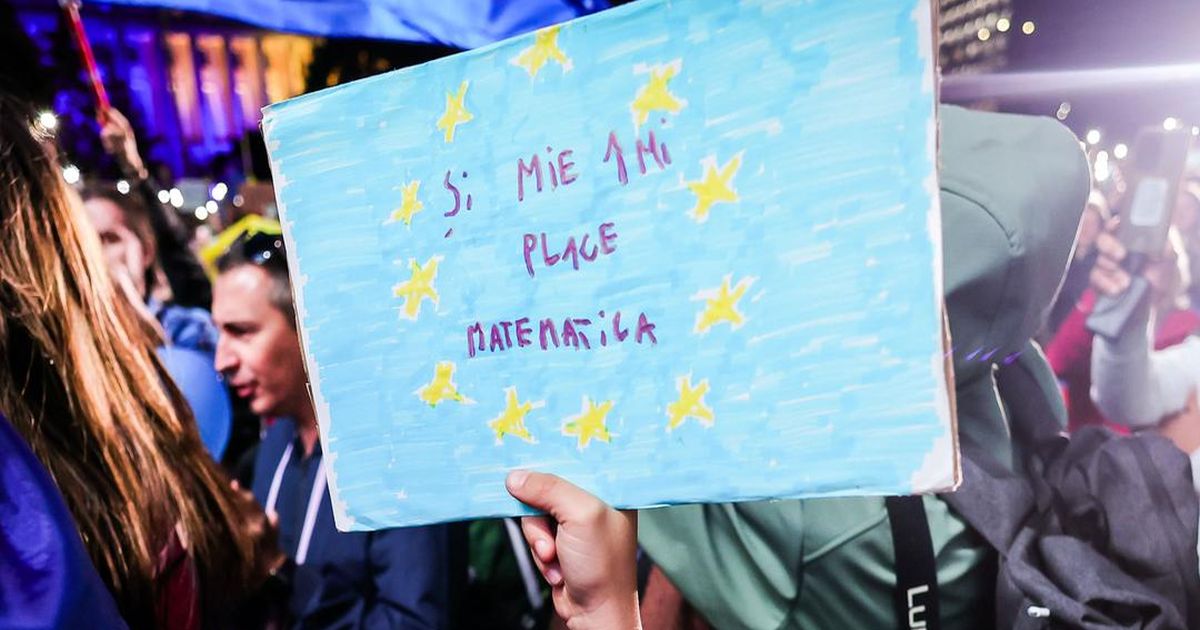 Și MiE ÎMi
PLACE
MATEMATiCA